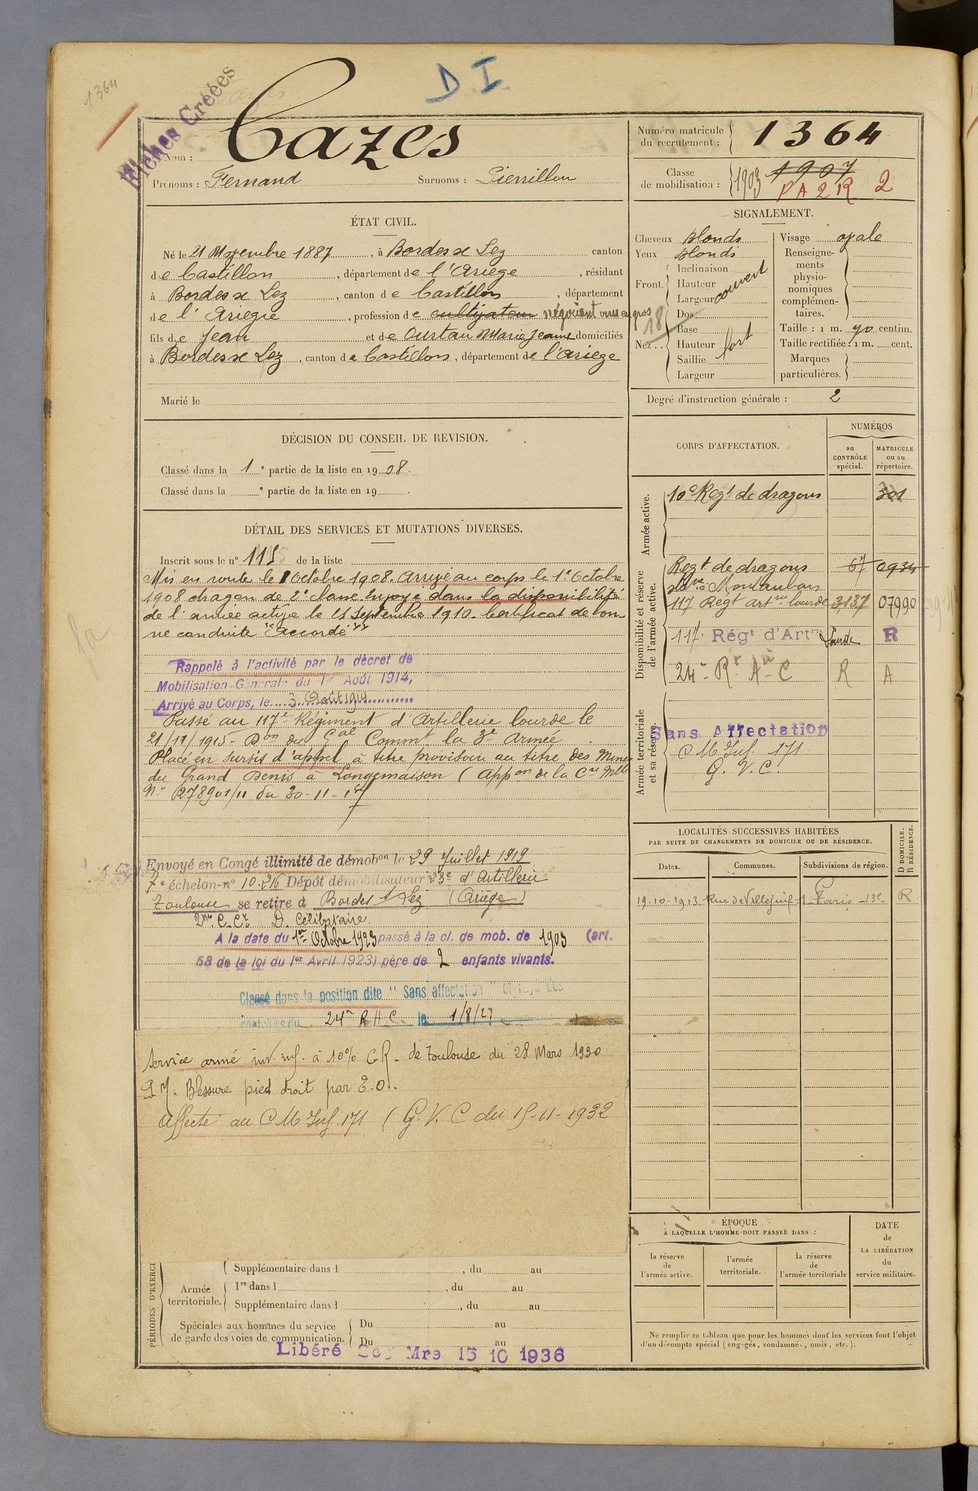 1364
D.I.
Fiches Créées
Nom : Cazes
Prénoms : Fernand Surnoms : Pierrillou
Numéro matricule du recrutement : 1364
Classe de mobilisation : 1903 1907
PA2R 2
ÉTAT CIVIL.
Né le 21 Novembre 1887, à Bordes s/ Lez canton
de Castillon, département de l'Ariège, résidant
à Bordes s/ Lez, canton de Castillon, département
de l'Ariège, profession de cultivateur négociant en gros
fils de Jean et de Ourtau Marie Jeanne domiciliés
à Bordes s/ Lez, canton de Castillon, département de l'Ariège
Marié le
SIGNALEMENT.
Cheveux blonds
Yeux blonds
Front. Inclinaison
Hauteur
Largeur
couvert
Nez. Dos
Base
Hauteur
Saillie
Largeur
fort
Visage ovale
Renseignements physionomiques complémentaires.
Taille : 1 m. 70 centim.
Taille rectifiée : 1 m. cent.
Marques particulières.
Degré d'instruction générale : 2
DÉCISION DU CONSEIL DE REVISION.
Classé dans la 1e partie de la liste en 1908.
Classé dans la e partie de la liste en 19 .
DÉTAIL DES SERVICES ET MUTATIONS DIVERSES.
Inscrit sous le n° 115 de la liste
Mis en route le 1 Octobre 1908. Arrivé au corps le 1er Octobre
1908 dragon de 2e classe. Envoyé dans la disponibilité
de l'armée active le 25 Septembre 1910. Certificat de bon
ne conduite "Accordé"
Rappelé à l'activité par le décret de
Mobilisation Générale du 1er Août 1914,
Arrivé au Corps, le 3 Août 1914
Passé au 117e Régiment d'Artillerie lourde le
21/11/1915. Don du Gal Commt la 3e Armée
Placé en sursis d'appel à titre provisoire au titre des Mines
du Grand Denis à Longemaison (Appon de la Cre Mlle
N° R78901/11 du 30-11-17
Envoyé en Congé illimité de démobon le 29 Juillet 1919
7e échelon n° 10.216 Dépôt démobilisateur 23e d'Artillerie
Toulouse se retire à Bordes s/ Lez (Ariège)
D. Célibataire.
A la date du 1er Octobre 1923 passé à la cl. de mob. de 1903 (art.
58 de la loi du 1er Avril 1923) père de 2 enfants vivants.
Classé dans la position dite "Sans affectation"
24e R.A.C. le 1/8/27
Service armé inv. inf. à 10% C.R. de Toulouse du 28 Mars 1930
P.M. Blessure pied droit par E.O.
Affecté au C M Inf. 171 (G.V.C du 15-11-1932
CORPS D'AFFECTATION.
NUMÉROS
au CONTRÔLE spécial.
MATRICULE ou au répertoire.
Armée active.
10e Regt de dragons 301
Disponibilité et réserve de l'armée active.
Regt de dragons 67 0934
Montauban
117 Régt artrie lourde 3137 07990
117 Régt d'Artie Lourde R
24e R. A. C R A
Armée territoriale et sa réserve.
Sans Affectation
C M Inf. 171
G. V. C.
LOCALITÉS SUCCESSIVES HABITÉES
PAR SUITE DE CHANGEMENTS DE DOMICILE OU DE RÉSIDENCE.
Dates. Communes. Subdivisions de région. D DOMICILE. R RÉSIDENCE.
19-10-1913 Rue de Villejuif 1 Paris 13e R
ÉPOQUE
À LAQUELLE L'HOMME DOIT PASSER DANS :
la réserve de l'armée active.
l'armée territoriale.
la réserve de l'armée territoriale
DATE de LA LIBÉRATION du service militaire.
Ne remplir ce tableau que pour les hommes dont les services font l'objet
d'un décompte spécial (engagés, condamnés, omis, etc.).
PÉRIODES D'EXERCI
Armée territoriale.
Supplémentaire dans l , du au
1re dans l , du au
Supplémentaire dans l , du au
Spéciales aux hommes du service de garde des voies de communication.
Du au
Du au
Libéré Mre 15 10 1936